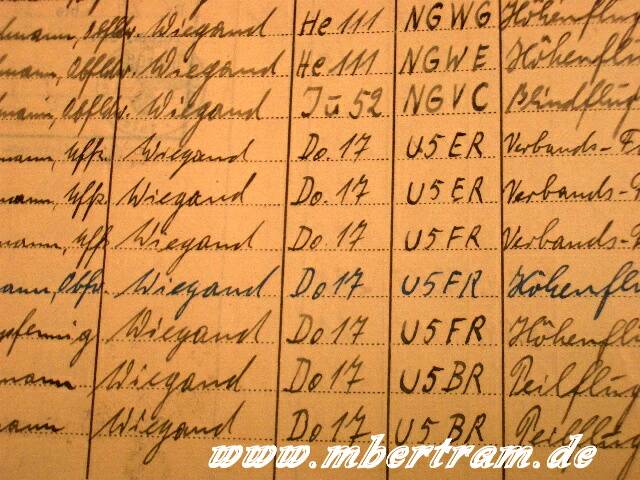 Wiegand He 111 NGWG Höhenflug
Wiegand He 111 NGWE Höhenflu
Wiegand Ju 52 NGVC Blindflug
Wiegand Do. 17 U5ER Verbands-F
Wiegand Do. 17 U5ER Verbands-F
Wiegand Do. 17 U5FR Verbands-F
Wiegand Do 17 U5FR Höhenflu
Wiegand Do 17 U5FR Höhenflu
mann Wiegand Do 17 U5BR Peilflug
mann Wiegand Do 17 U5BR Peilflug
www.mbertram.de